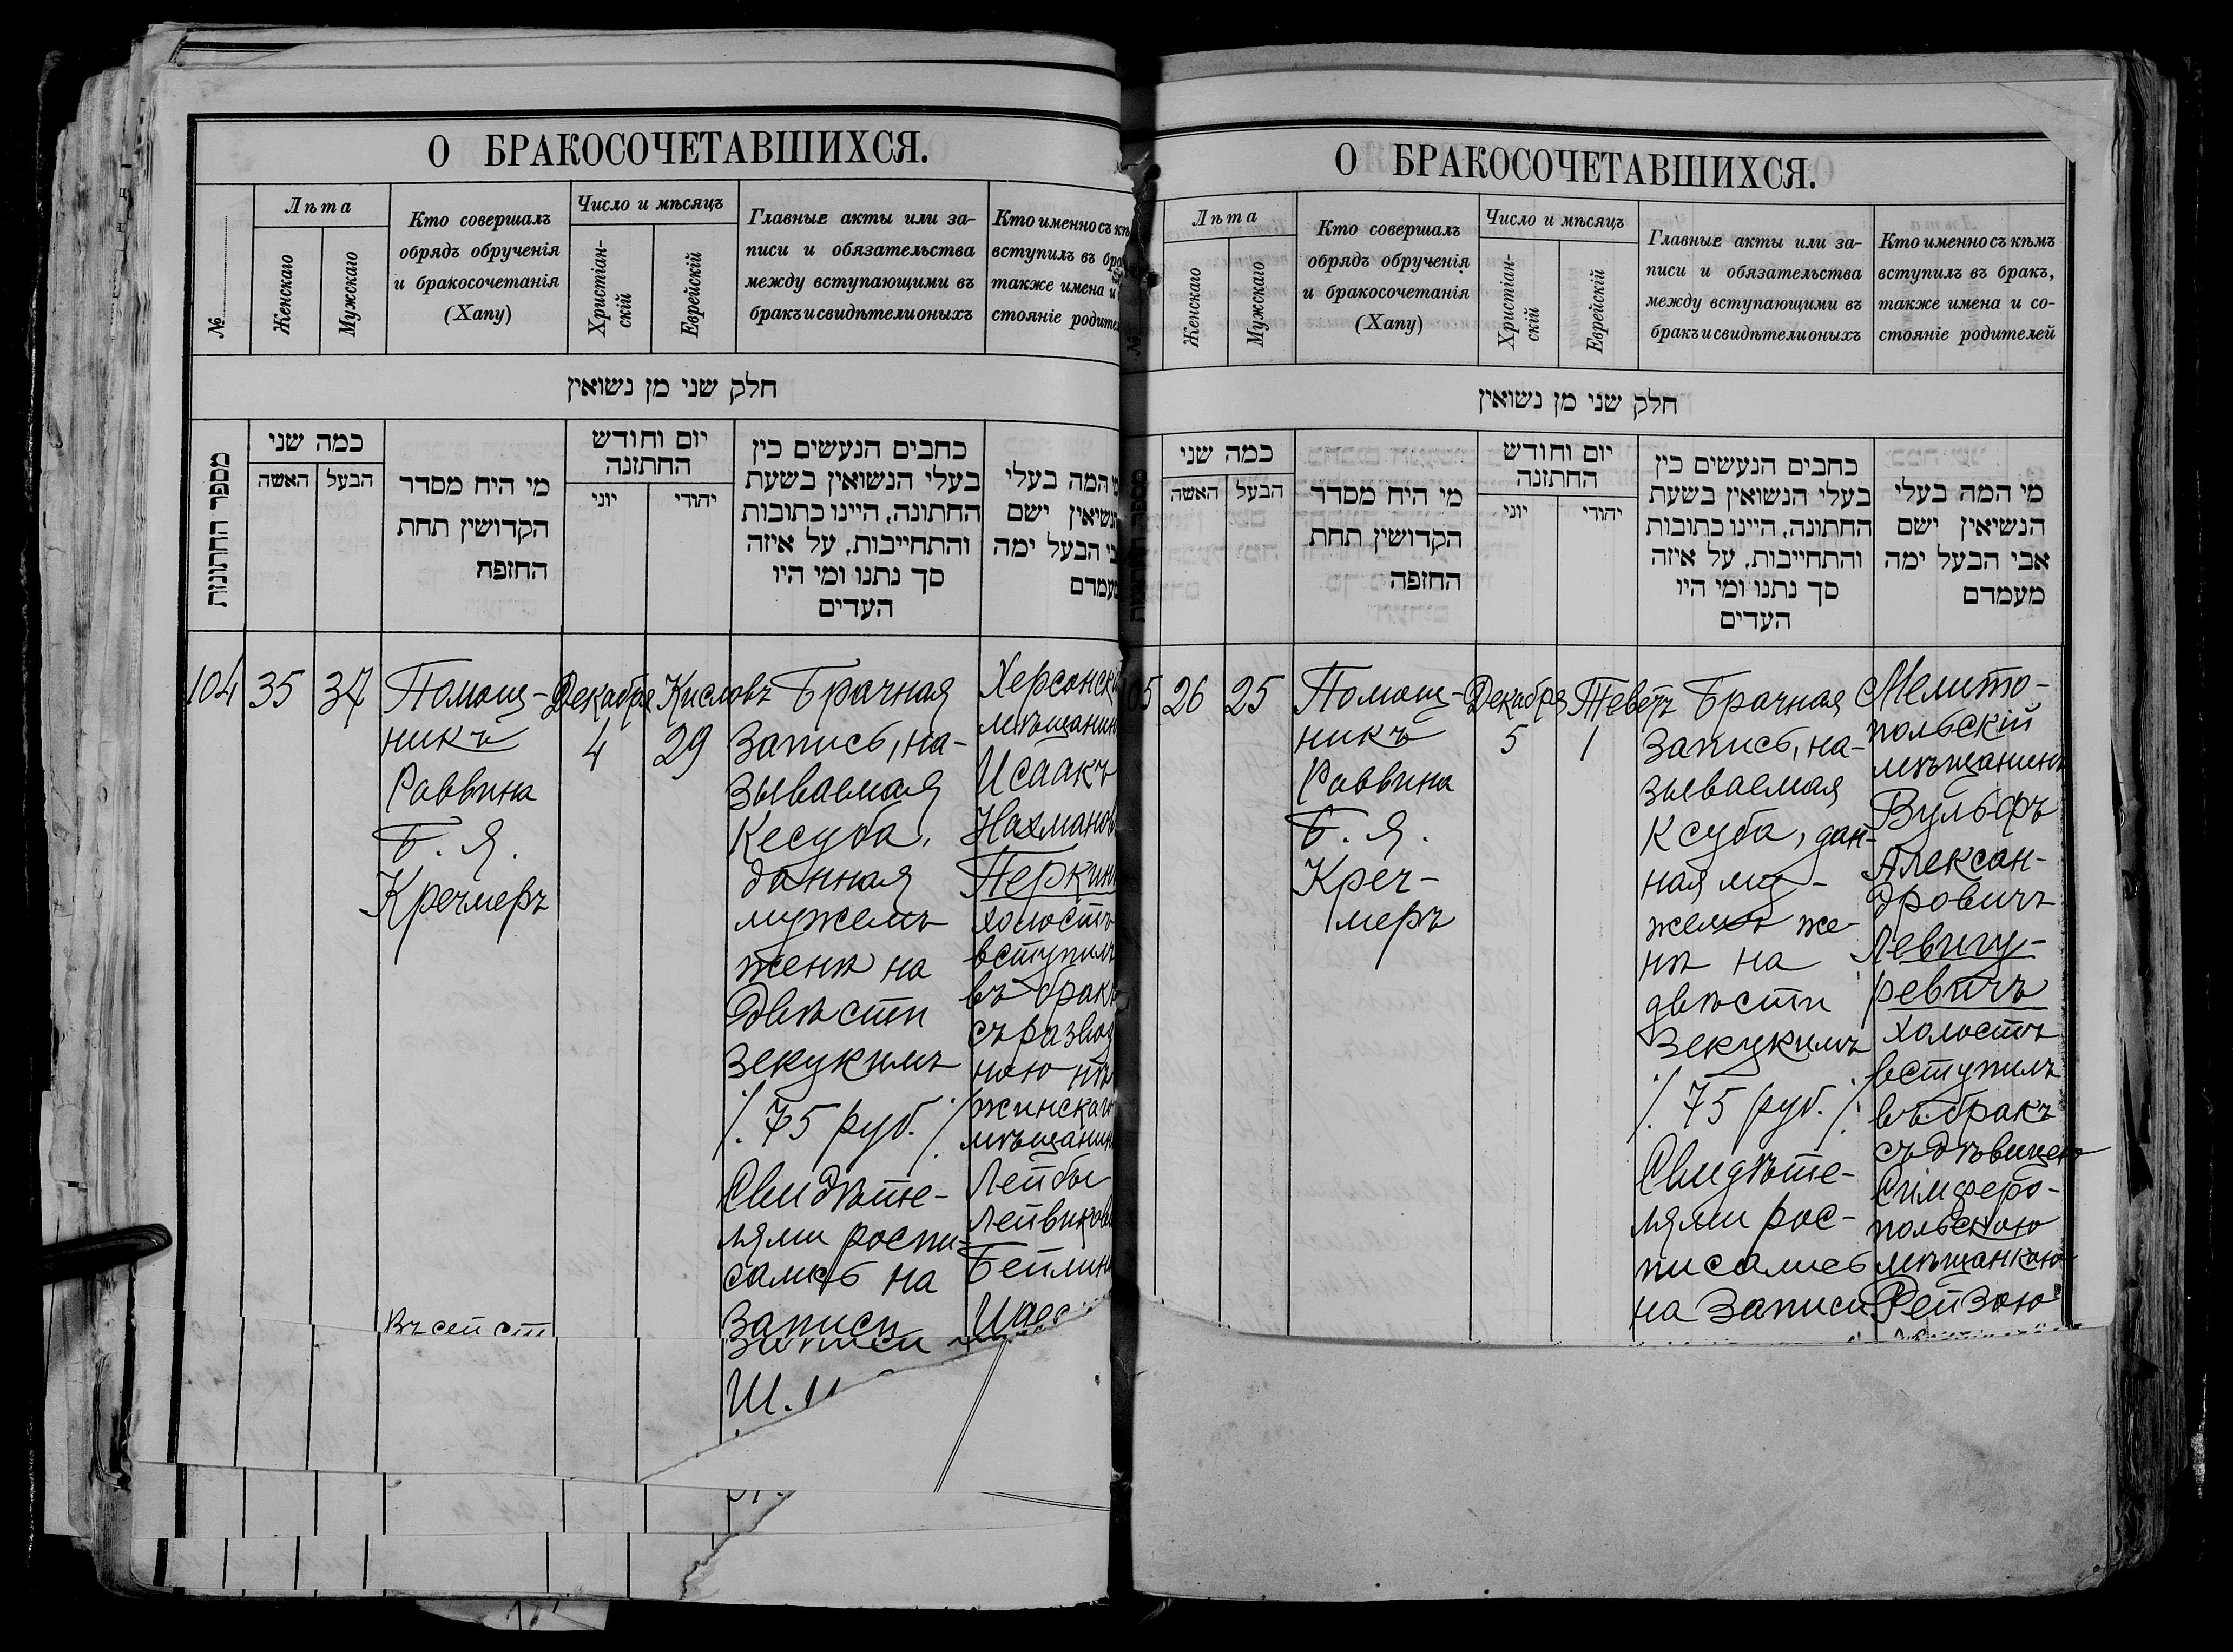 О БРАКОСОЧЕТАВШИХСЯ.
№
Лѣта
Женскаго
Мужскаго
Кто совершалъ
обрядъ обрученія
и бракосочетанія
(Хапу)
Число и мѣсяцъ
Христіан-
скій
Еврейскій
Главные акты или за-
писи и обязательства
между вступающими въ
бракъ и свидѣтели оныхъ
Кто именно съ кѣ
вступилъ въ бра
также имена и
стояніе родите
חלק שני מן נשואין
מספר החתונות
כמה שני
האשה
הבעל
מי היח מסדר
הקדושין תחת
החזפח
יום וחודש
החתזנה
יוני
יהודי
כחבים הנעשים כין
בעלי הנשואין בשעת
החתונה, היינו כתובות
והתחייבות, על איזה
סך נתנו ומי היו
העדים
המה בעלי
הנשיאין ישם
הבעל ימה
מעמדם
104
35
37
Помощ-
никъ
Раввина
Б. Я.
Кречмеръ
Декабря
4
Кисловъ
29
Брачная
Запись, на-
зываемая
Кесуба,
данная
мужемъ
женѣ на
двѣсти
зекукимъ
/. 75 руб. /.
Свидѣте-
лями роспи-
сались на
Записи
Записи
Ш.
Херсонскі
мѣщанинъ
Исаакъ
Нахманов
Перкин
холостъ
вступилъ
въ бракъ
съ развод
ною нѣ
жинскаго
мѣщанин
Лейбы
Лейвиков
Бейлин
Въ сей ст
О БРАКОСОЧЕТАВШИХСЯ.
№
Лѣта
Женскаго
Мужскаго
Кто совершалъ
обрядъ обрученія
и бракосочетанія
(Хапу)
Число и мѣсяцъ
Христіан-
скій
Еврейскій
Главные акты или за-
писи и обязательства
между вступающими въ
бракъ и свидѣтели оныхъ
Кто именно съ кѣмъ
вступилъ въ бракъ,
также имена и со-
стояніе родителей
חלק שני מן נשואין
כמה שני
האשה
הבעל
מי היח מסדר
הקדושין תחת
החזפה
יום וחודש
החתזנה
יוני
יהודי
כחבים הנעשים כין
בעלי הנשואין בשעת
החתונה, היינו כתובות
והתחייבות, על איזה
סך נתנו ומי היו
העדים
מי המה בעלי
הנשיאין ישם
אבי הבעל ימה
מעמדם
05
26
25
Помощ-
никъ
Раввина
Б. Я.
Креч-
меръ
Декабря
5
Теветъ
1
Брачная
Запись, на-
зываемая
Ксуба, дан-
ная му-
жемъ же-
нѣ на
двѣсти
Зекукимъ
/. 75 руб. /.
Свидѣте-
лями рос-
писались
на Записи
Мелито-
польскій
мѣщанинъ
Вульфъ
Алексан-
дровичъ
Левигу-
ревичъ
холостъ
вступилъ
въ бракъ
съ дѣвицею
Симферо-
польскою
мѣщанкою
Рейзою